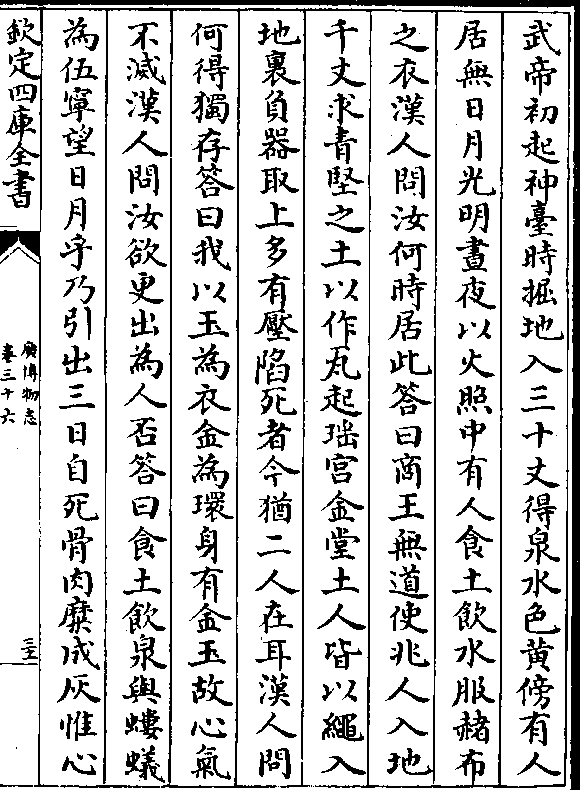 武帝初起神臺時掘地入三十丈得泉水色黄傍有人
居無日月光明晝夜以火照中有人食土飲水服赭布
之衣漢人問汝何時居此答曰商王無道使兆人入地
千丈求青堅之土以作瓦起瑤宫金堂土人皆以繩入
地裏負器取上多有壓陷死者今猶二人在耳漢人問
何得獨存答曰我以玉為衣金為環身有金玉故心氣
不滅漢人問汝欲更出為人否答曰食土飲泉與螻蟻
為伍寧望日月乎乃引出三日自死骨肉糜成灰惟心
欽定四庫全書
廣博物志
卷三十六
三十二